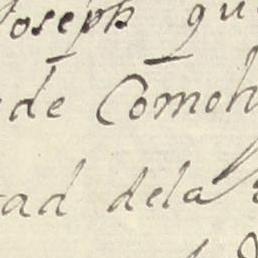 Joseph qu
de Comoh
ad dela